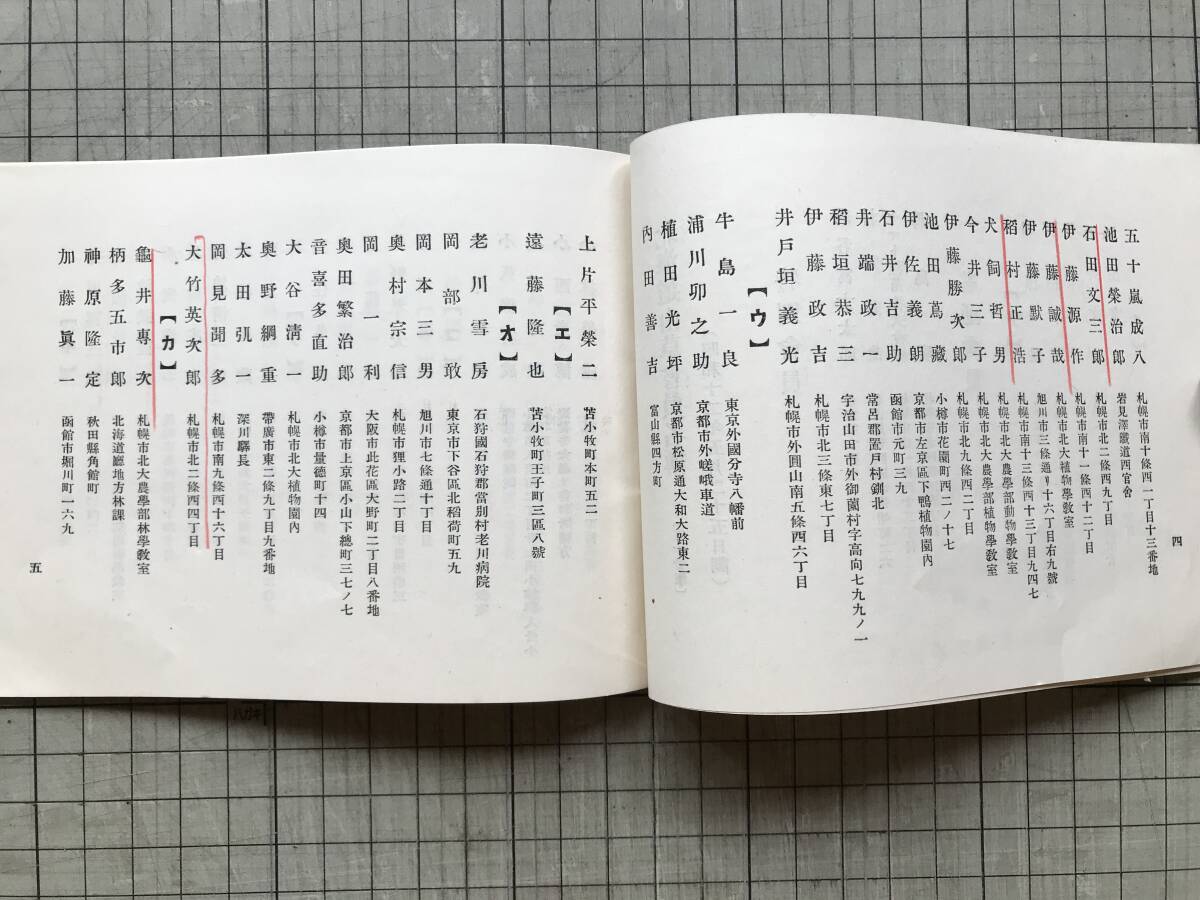 五十嵐成八 札幌市南十條西四一丁目十三番地
池田榮治郎 岩見澤嚴道西官舍
石田文三郎 札幌市北二條西九丁目
伊藤源作 札幌市南十一條西十二丁目
伊藤誠哉 札幌市北大植物學教室
伊藤默子 旭川市三條通リ十六丁目右九號
稻村正浩 札幌市南十三條西十三丁目九四七
犬飼哲男 札幌市北大農學部動物學教室
今井三子 札幌市北大農學部植物學教室
伊藤勝次郎 札幌市北九條西二丁目
池田蔦藏 小樽市花園町西二ノ十七
伊佐義朗 京都市左京區下鴨植物園內
石井吉助 函館市元町三九
井端政一 常呂郡置戶村釧北
稻垣恭三 宇治山田市外御薗村字高向七九九ノ一
伊藤政吉 札幌市北三條東七丁目
井戶垣義光 札幌市外圓山南五條西六丁目
【ウ】
牛島一良 東京外國分寺八幡前
浦川卯之助 京都市外嵯峨車道
植田光坪 京都市松原通大和大路東二
內田善吉 富山縣四方町
四
上片平榮二 苫小牧町本町五二
【エ】
遠藤隆也 苫小牧町王子町三區八號
【オ】
老川雪房 石狩國石狩郡當別村老川病院
岡部敢 東京市下谷區北稻荷町五九
岡本三男 旭川市七條通十丁目
奧村宗信 札幌市狸小路二丁目
岡一利 大阪市此花區大野町二丁目八番地
奧田繁治郎 京都市上京區小山下總町三七ノ七
音喜多直助 小樽市量德町十四
大谷淸一 札幌市北大植物園內
奧野綱重 帶廣市東二條九丁目九番地
太田弘一 深川驛長
岡見聞多 札幌市南九條西四十六丁目
大竹英次郎 札幌市北二條西四丁目
【カ】
龜井專次 札幌市北大農學部林學教室
柄多五市郎 北海道廳地方林課
神原隆定 秋田縣角館町
加藤眞一 函館市堀川町一六九
五